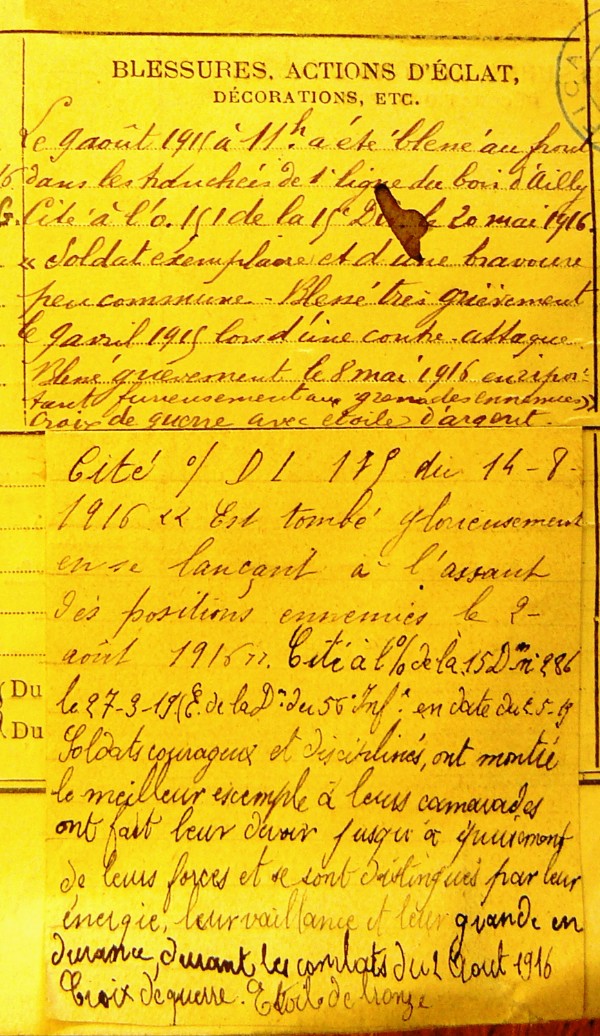 BLESSURES, ACTIONS D'ÉCLAT,
DÉCORATIONS, ETC.
Le 9 août 1915 à 11h a été blessé au front
dans les tranchées de 1e ligne du bois d'Ailly
Cité à l'o. 151 de la 15e le 20 mai 1916.
« Soldat exemplaire et d'une bravoure
peu commune - Blessé très grièvement
le 9 avril 1915 lors d'une contre-attaque
Blessé grièvement le 8 mai 1916 en ripos-
tant furieusement aux grenades ennemies »
Croix de guerre avec étoile d'argent.
Cité o/ D I 175 du 14-8-
1916 << Est tombé glorieusement
en se lançant à l'assaut
des positions ennemies le 2-
août 1916 >>. Cité à l'o/o de la 15 Don no 286
le 27-3-19 (E. de la Don du 56e Infie en date du 2-5-19
Soldats courageux et disciplinés, ont montré
le meilleur exemple à leurs camarades
ont fait leur devoir jusqu'à épuisement
de leurs forces et se sont distingués par leur
énergie, leur vaillance et leur grande en
durance, durant les combats du 2 Aout 1916
Croix de guerre. Etoile de bronze
Du
Du